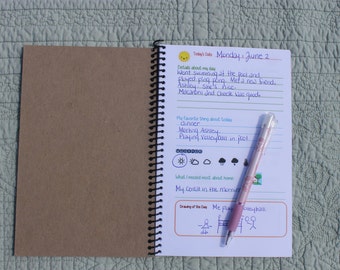 Today's Date: Monday, June 2
Details about my day:
Went swimming at the pool and
played ping pong. Met a new friend
Ashley. She's nice.
Macaroni and cheese was good.
My favorite thing about Today:
dinner
Meeting Ashley
Playing volleyball in pool
WEATHER
What I missed most about home:
My Cereal in the morning
Drawing of the Day
Me playing volleyball